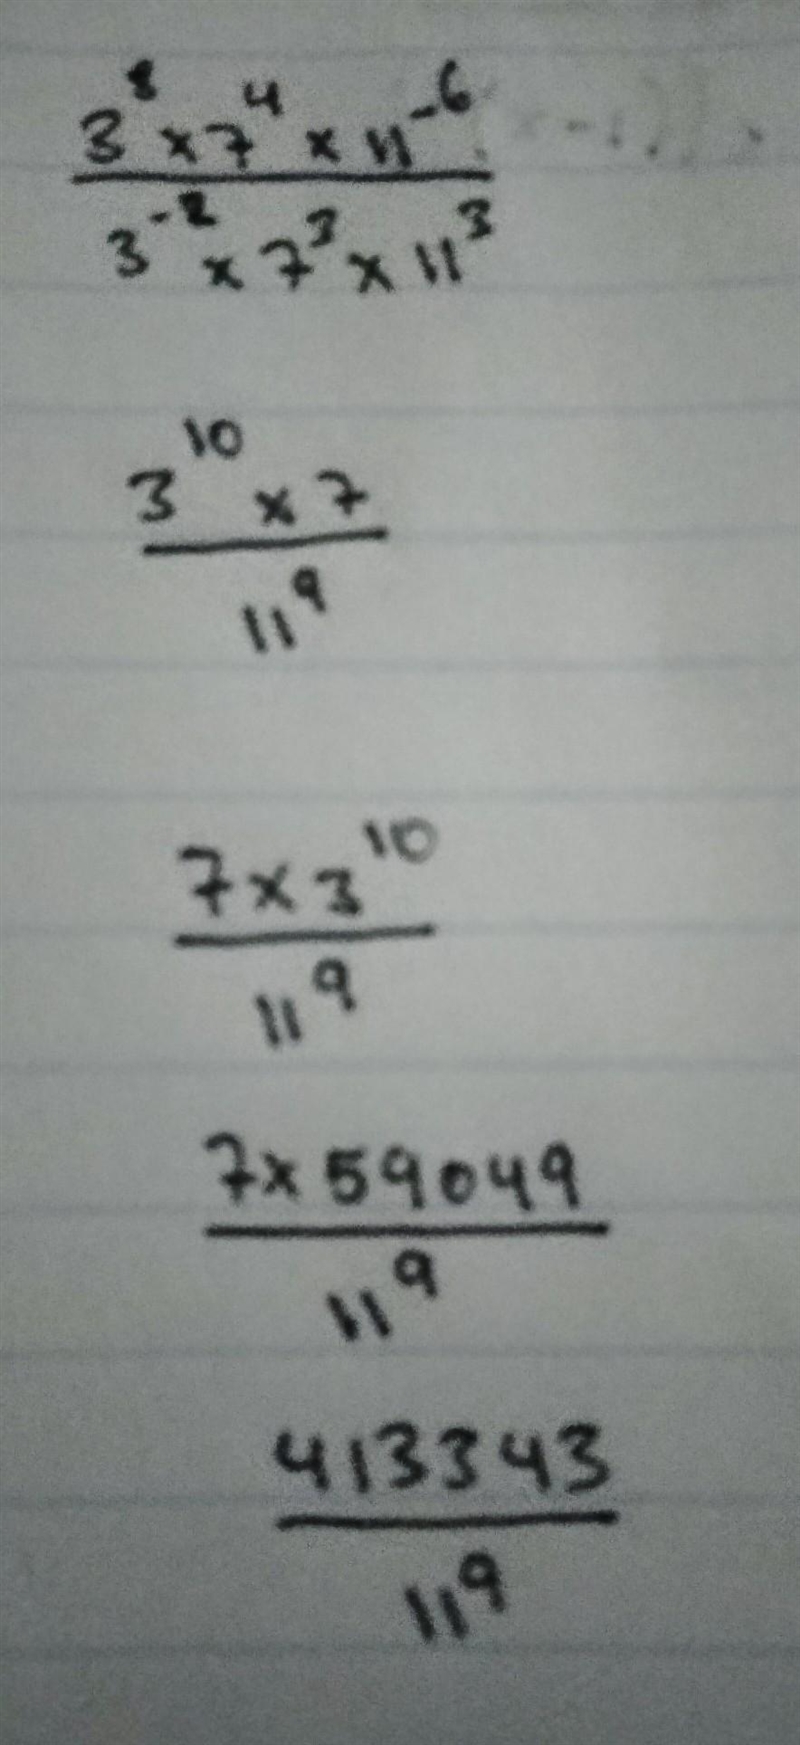 3⁸ × 7⁴ × 11⁻⁶
3⁻² × 7³ × 11³
3¹⁰ × 7
11⁹
7 × 3¹⁰
11⁹
7 × 59049
11⁹
413343
11⁹